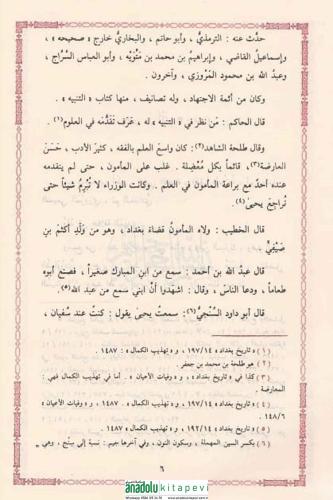 حدَّث عنه : الترمذيُّ ، وأبو حاتم ، والبخاريُّ خارج « صحيحه » ،
وإسماعيلُ القاضي ، وإبراهيم بن محمد بن مَتُّوَيْه ، وأبو العباس السَّراج ،
وعبدُ الله بن محمود المَرْوَزي ، وآخرون .
وكان من أئمة الاجتهاد ، وله تصانيف ، منها كتاب « التنبيه » .
قال الحاكم : مَن نظر في « التنبيه » له ، عَرَفَ تَقَدُّمَه في العلوم(١) .
وقال طلحة الشاهد(٢) : كان واسعَ العلم بالفقه ، كثيرَ الأدب ، حَسَنَ
العارضة(٣) ، قائماً بكل مُعْضِلة . غلب على المأمون ، حتى لم يتقدمه
عنده أحدٌ مع براعة المأمون في العلم . وكانت الوزراء لا تُبْرِمُ شيئاً حتى
تُراجعَ يحيىٰ(٤) .
قال الخطيب : ولاه المأمونُ قضاءَ بغداد ، وهو من وَلَدِ أكثَم بنِ
صَيْفِيٍّ
قال عبدُ الله بن أحمد : سمع من ابن المبارك صغيراً ، فصنع أبوه
طعاماً ، ودعا الناسَ ، وقال : اشهدُوا أنَّ ابني سمع من عبد الله(٥) .
قال أبو داود السِّنْجيُّ(٦) : سمعتُ يحيىٰ يقول : كنتُ عند سُفيان ،
(١) « تاريخ بغداد » ١٩٧/١٤ ، و « تهذيب الكمال » : ١٤٨٧ .
(٢) هو طلحة بن محمد بن جعفر .
(٣) كذا في « تاريخ بغداد » ، و « وفيات الأعيان » . أما في تهذيب الكمال فهي :
المعارضة
(٤) « تاريخ بغداد » ١٩٧/١٤ ، و « تهذيب الكمال » : ١٤٨٧ ، و « وفيات الأعيان »
١٤٨/٦ .
(٥) « تاريخ بغداد » ١٩٧/١٤ ، و « تهذيب الكمال » : ١٤٨٧ .
(٦) بكسر السين المهملة ، وسكون النون ، وفي آخرها جيم : نسبة إلى سِنْج ، وهي =
٦
anadolu kitapevi